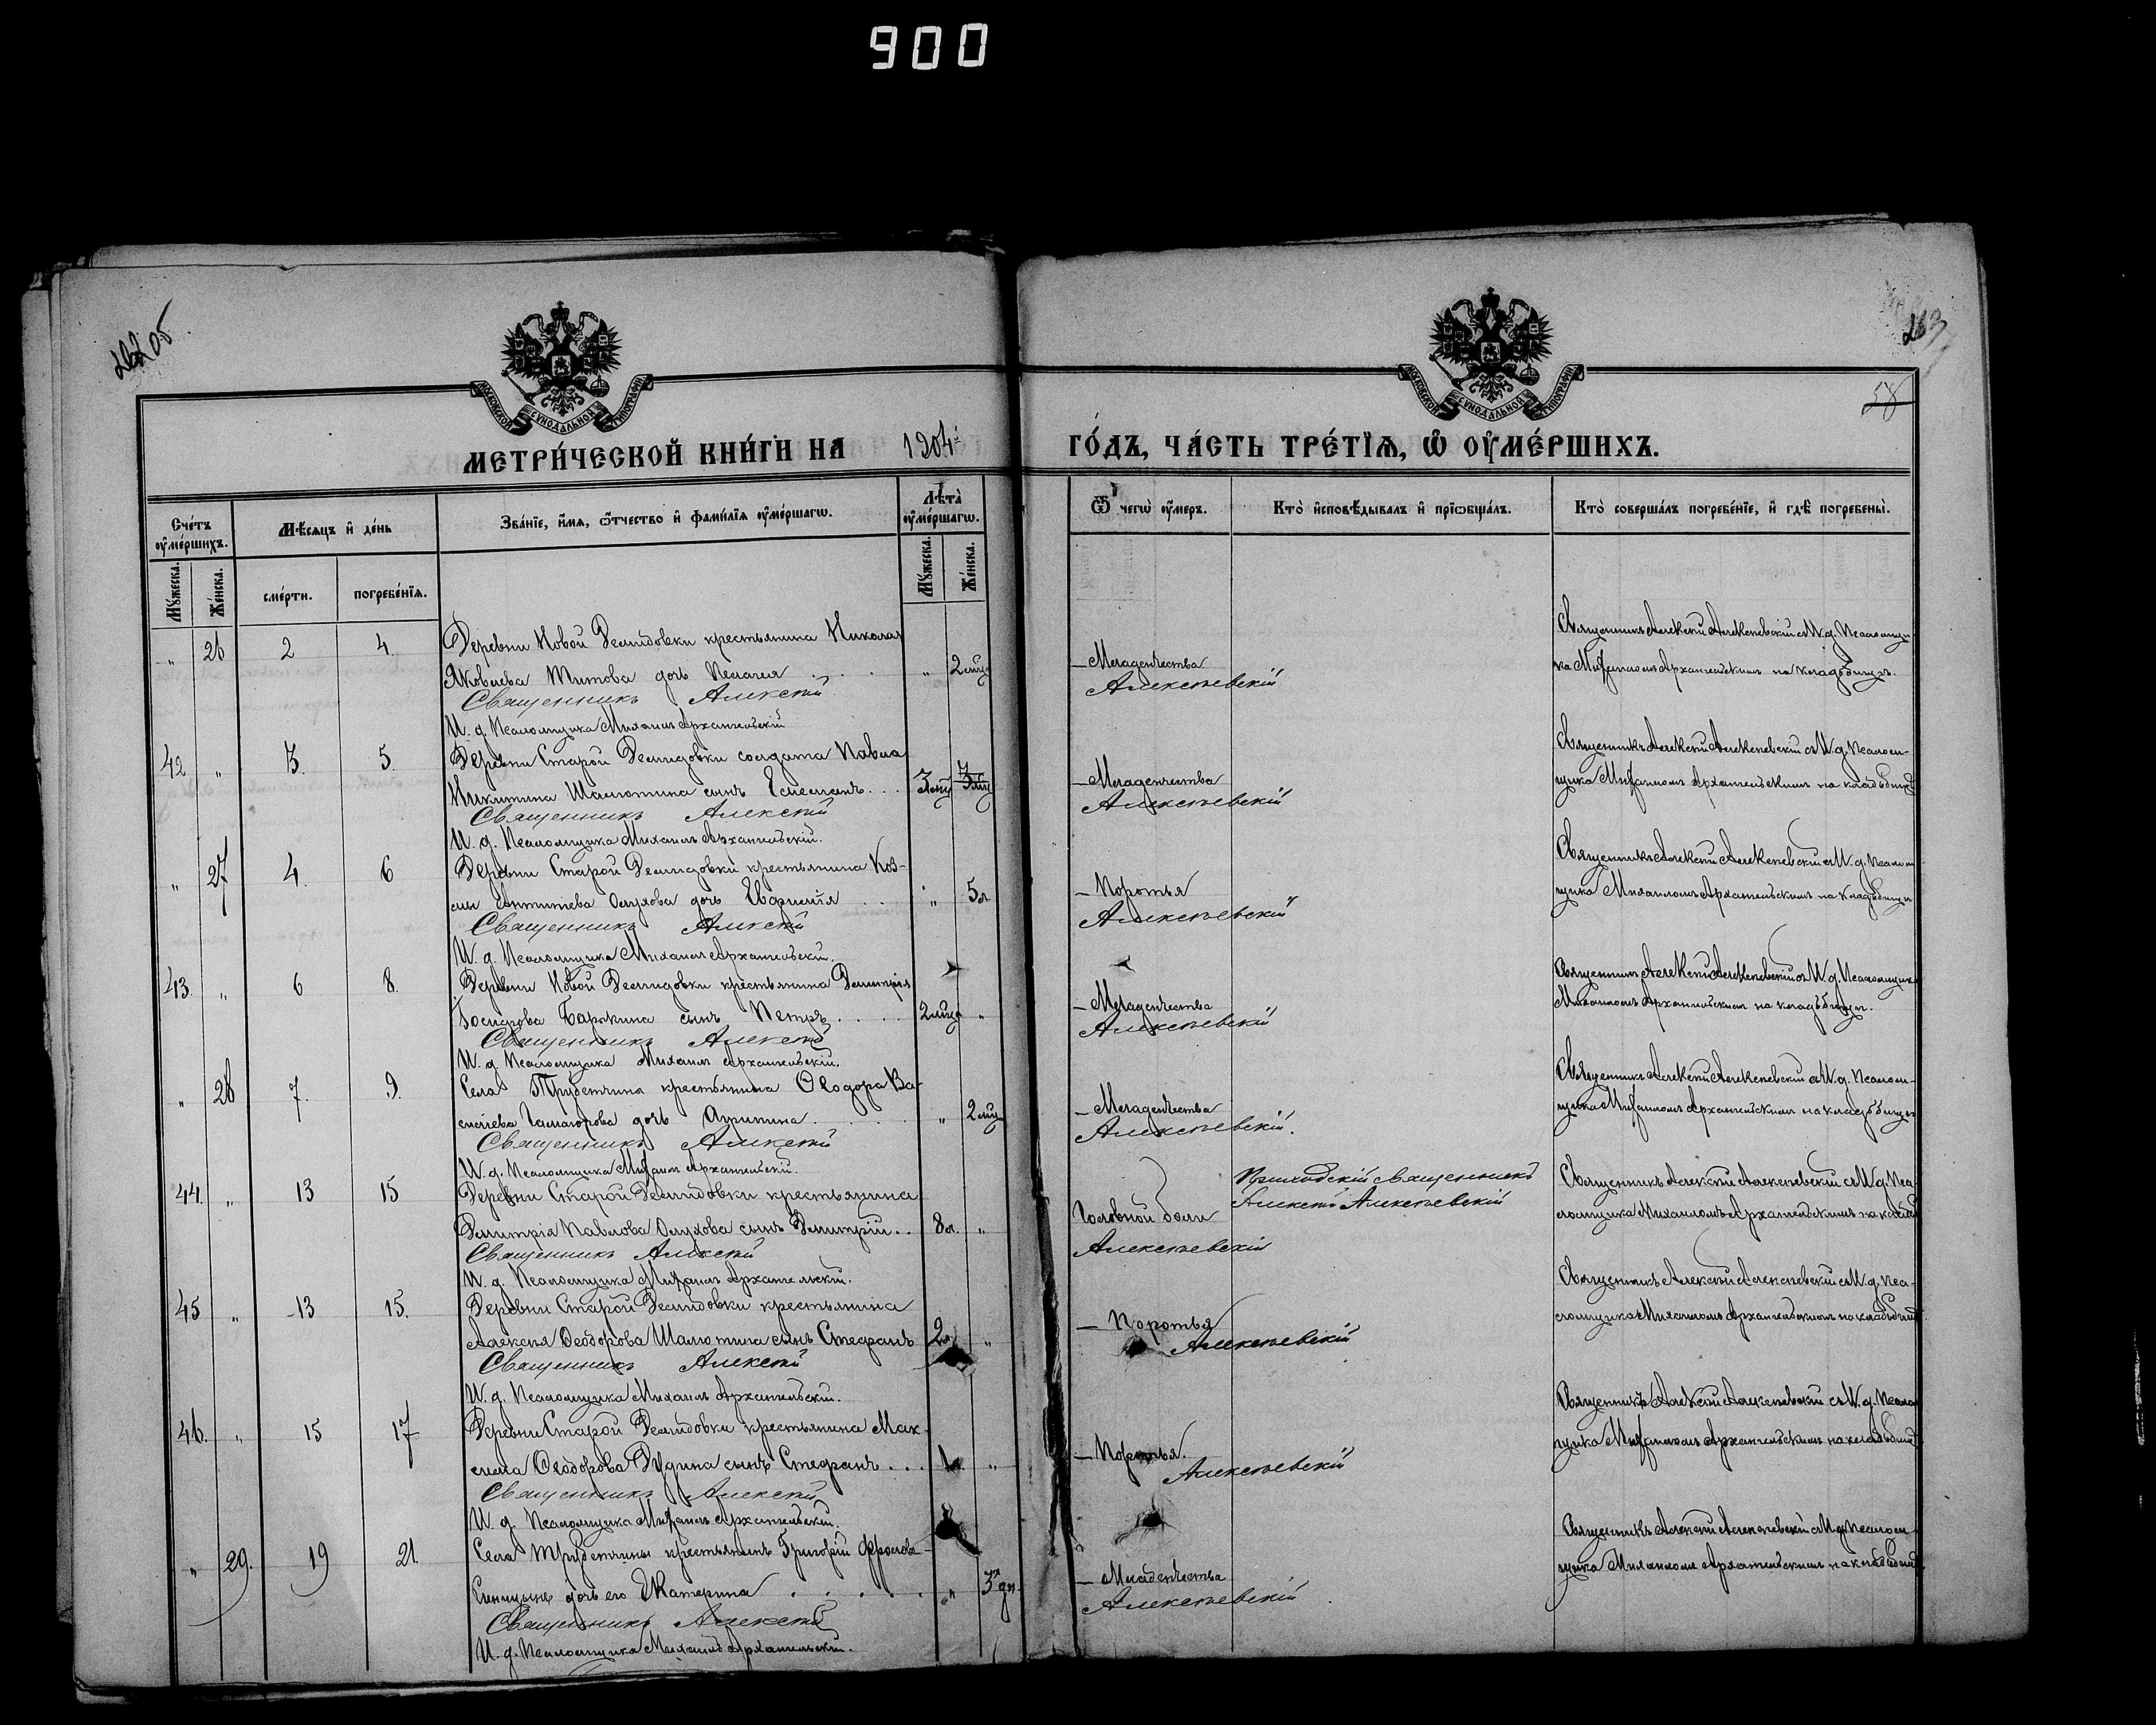 900
263
58
МОСКОВСКОЙ СУНОДАЛЬНОЙ ТИПОГРАФІИ
МОСКОВСКОЙ СУНОДАЛЬНОЙ ТИПОГРАФІИ
МЕТРИ́ЧЕСКОЙ КНИ́ГИ НА 1904й ГО́ДЪ, ЧА́СТЬ ТРЕ́ТІѦ, Ѡ҆ ОУ҆МЕ́РШИХЪ.
Сче́тъ оу҆ме́ршихъ.
Мѣ́сяцъ и҆ де́нь
Зва́нїе, и҆́мя, ѻ҆́тчество и҆ фами́лїя оу҆ме́ршагѡ.
Лѣ́та оу҆ме́ршагѡ.
Ѿ чегѡ̀ оу҆́меръ.
Кто̀ и҆сповѣ́дывалъ и҆ прїѡбща́лъ.
Кто̀ соверша́лъ погребе́нїе, и҆ гдѣ̀ погребены̀.
Му́жеска.
Же́нска.
сме́рти.
погребе́нїя.
Му́жеска.
Же́нска.
„ 26 2 4. Деревни Новой Демидовки крестьянина Николая
Яковлева Титова дочь Пелагея „ 2 мца
Священникъ Алексѣй
И. д. Псаломщика Михаилъ Архангельскій
— Младенчества
Алексѣевскій
Священникъ Алексѣй Алексѣевскій съ И. д. Псаломщи-
ка Михаиломъ Архангельскимъ на кладбищѣ.
42 „ 3. 5. Деревни Старой Демидовки солдата Павла
Никитина Шалютина сынъ
Священникъ Алексѣй
И. д. Псаломщика Михаилъ Архангельскій.
— Младенчества
Алексѣевскій
Священникъ Алексѣй Алексѣевскій съ И. д. Псалом-
щика Михаиломъ Архангельскимъ на кладбищѣ
„ 27 4. 6 Деревни Старой Демидовки крестьянина Коз-
мы дочь Евфимія „ 5 л.
Священникъ Алексѣй
И. д. Псаломщика Михаилъ Архангельскій.
— Коротья
Алексѣевскій
Священникъ Алексѣй Алексѣевскій съ И. д. Псалом-
щика Михаиломъ Архангельскимъ на кладбищѣ
43. „ 6 8. Деревни Новой Демидовки крестьянина Димитрія
Баркина сынъ Петръ 2 мца „
Священникъ Алексѣй
И. д. Псаломщика Михаилъ Архангельскій.
— Младенчества
Алексѣевскій
Священникъ Алексѣй Алексѣевскій съ И. д. Псаломщика
Михаиломъ Архангельскимъ на кладбищѣ.
„ 28 7. 9. Села Трубетчина крестьянина Ѳеодора Ва-
силіева дочь Агрипина „ 2 мца
Священникъ Алексѣй
И. д. Псаломщика Михаилъ Архангельскій.
— Младенчества
Алексѣевскій.
Священникъ Алексѣй Алексѣевскій съ И. д. Псалом-
щика Михаиломъ Архангельскимъ на кладбищѣ
44. „ 13 15 Деревни Старой Демидовки крестьянина
Димитрія Павлова сынъ Димитрій 8 л. „
Священникъ Алексѣй
И. д. Псаломщика Михаилъ Архангельскій.
Головной боли
Алексѣевскій
Приходскій Священникъ
Алексѣй Алексѣевскій
Священникъ Алексѣй Алексѣевскій съ И. д. Пса-
ломщика Михаиломъ Архангельскимъ на кладб.
45 „ 13 15. Деревни Старой Демидовки крестьянина
Алексѣя Ѳеодорова Шалютина сынъ Стефанъ 2 л. „
Священникъ Алексѣй
И. д. Псаломщика Михаилъ Архангельскій.
— Коротья
Алексѣевскій
Священникъ Алексѣй Алексѣевскій съ И. д. Пса-
ломщика Михаиломъ Архангельскимъ на кладбищѣ
46. „ 15 17 Деревни Старой Демидовки крестьянина Мак-
сима Ѳеодорова Дудина сынъ Стефанъ „
Священникъ Алексѣй
И. д. Псаломщика Михаилъ Архангельскій.
— Коротья.
Алексѣевскій
Священникъ Алексѣй Алексѣевскій съ И. д. Псалом-
щика Михаиломъ Архангельскимъ на кладбищѣ
„ 29. 19 21. Села Трубетчины крестьянинъ Григорій Фролова
дочь его Екатерина „ 3х дн.
Священникъ Алексѣй
И. д. Псаломщика Михаилъ Архангельскій.
— Младенчества
Алексѣевскій
Священникъ Алексѣй Алексѣевскій съ И. д. Псалом-
щика Михаиломъ Архангельскимъ на кладбищѣ